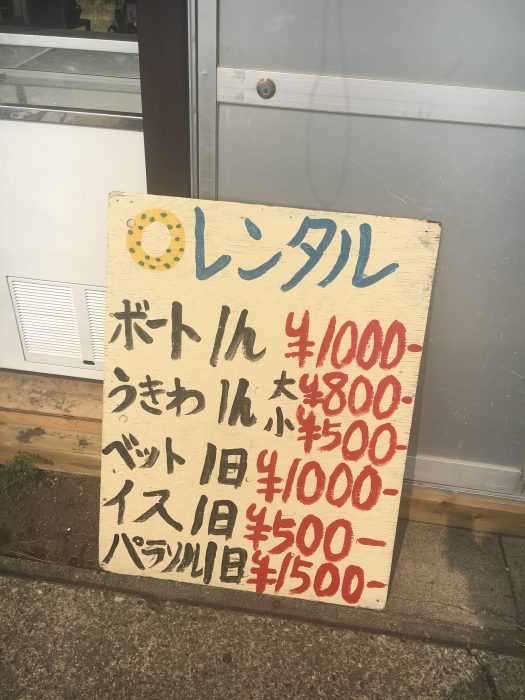 レンタル
ボート 1h ¥1000-
うきわ 1h 大 ¥800-
小 ¥500-
ベット 1日 ¥1000-
イス 1日 ¥500-
パラソル 1日 ¥1500-